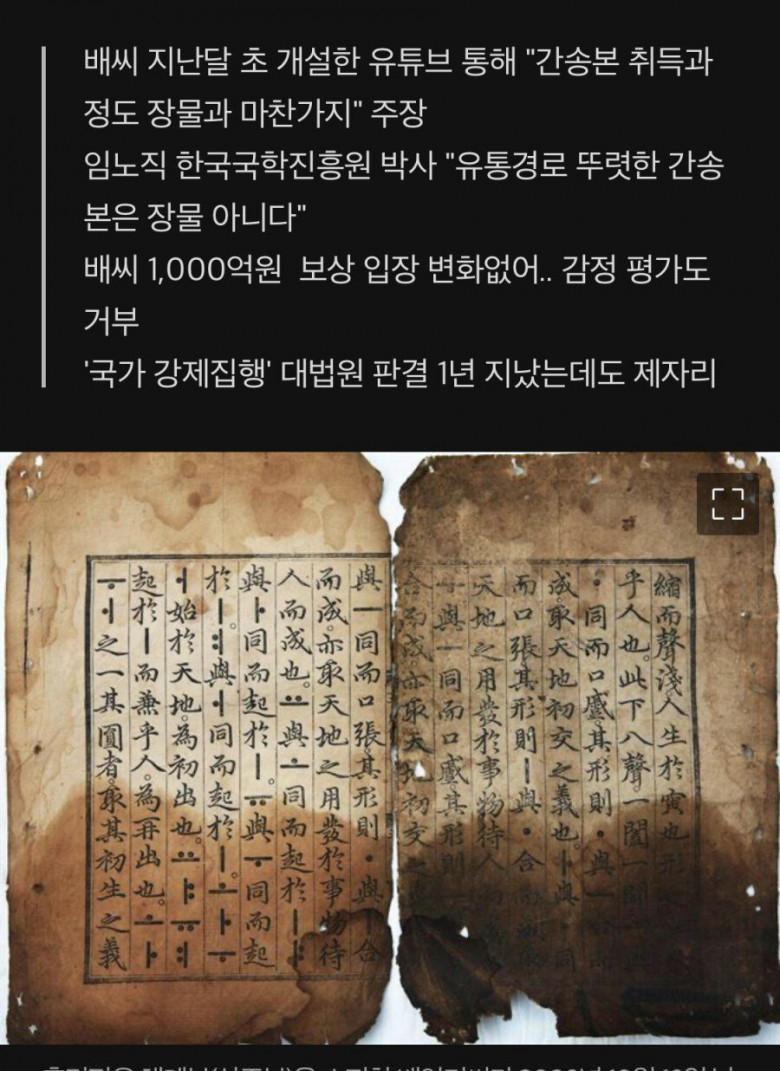 배씨 지난달 초 개설한 유튜브 통해 "간송본 취득과
정도 장물과 마찬가지" 주장
임노직 한국국학진흥원 박사 "유통경로 뚜렷한 간송
본은 장물 아니다"
배씨 1,000억원 보상 입장 변화없어.. 감정 평가도
거부
'국가 강제집행' 대법원 판결 1년 지났는데도 제자리
縮而聲淺人生於寅也形
乎人也。此下八聲一闔一
ㆍ同而口蹙其形則ㆍ與
成取天地初交之義也。ㅏ與ㆍ同
而口張其形則ㅣ與ㆍ合而
天地之用發於事物待人
ㅜ與ㅡ同而口蹙其形則
合而成。亦取天地初交之
與ㅡ同而口張其形則ㆍ與ㅣ合
而成。亦取天地之用發於事物待
人而成也。ㅛ與ㅗ同而起於ㅣ。ㅑ
與ㅏ同而起於ㅣ。ㅠ與ㅜ同而起
於ㅣ。ㅕ與ㅓ同而起於ㅣ。ㅗㅏㅜ
ㅓ始於天地。為初出也。ㅛㅑㅠㅕ
起於ㅣ而兼乎人。為再出也。ㅗㅏ
ㅜㅓ之一其圓者。取其初生之義